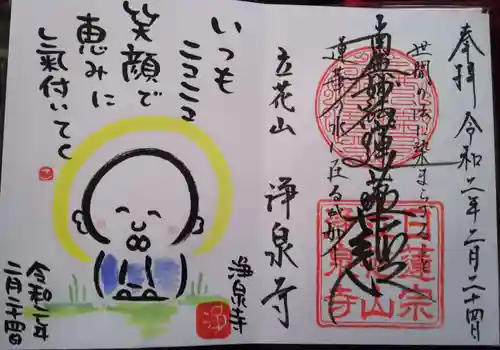 奉拝 令和二年二月二十四日
世間の法に染まらざること
蓮華の水に在るが如し
南無妙法蓮華経
日蓮宗
立花山
浄泉寺
立花山 浄泉寺
いつも
ニコニコ
笑顔で
恵みに
気付いてく
浄泉寺
浄
令和二年
二月二十四日